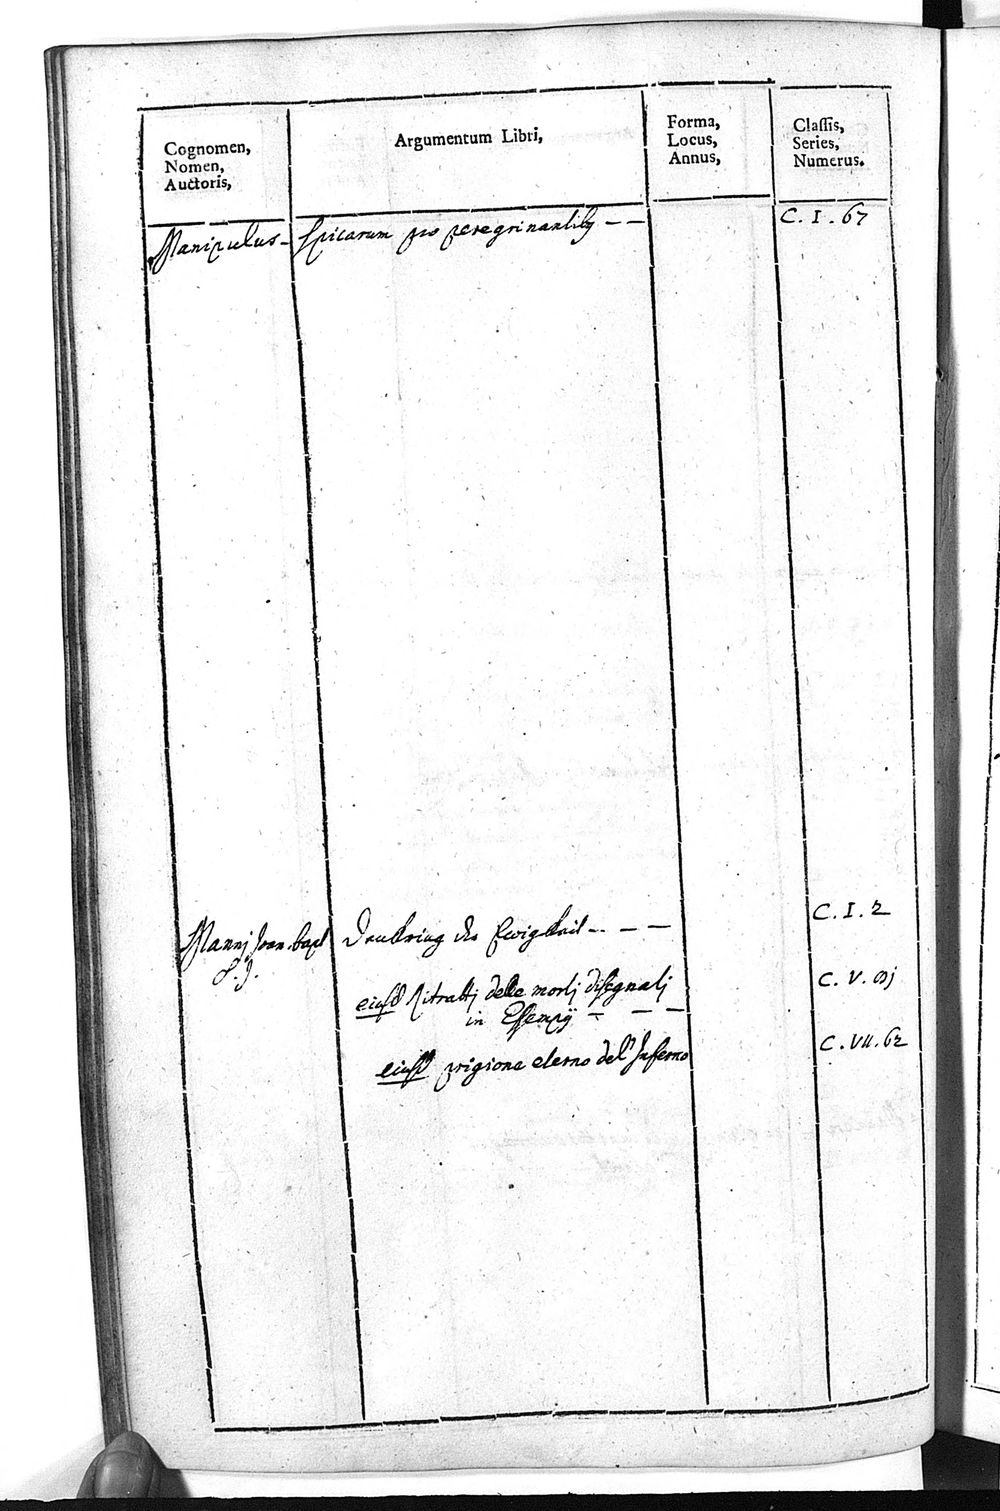 Cognomen,
Nomen,
Auctoris,
Argumentum Libri,
Forma,
Locus,
Annus,
Classis,
Series,
Numerus.
Manipulus - spicarum pro peregrinantibus - - C. I. 67
Mannj Joan. bapt Denkring der Ewigkeit - - - C. I. 2
S. J.
eiusd Ritratti delle mortj disegnatj C. V.
in Essempÿ - - -
eiusd prigione eterno del' Inferno C. VII. 62